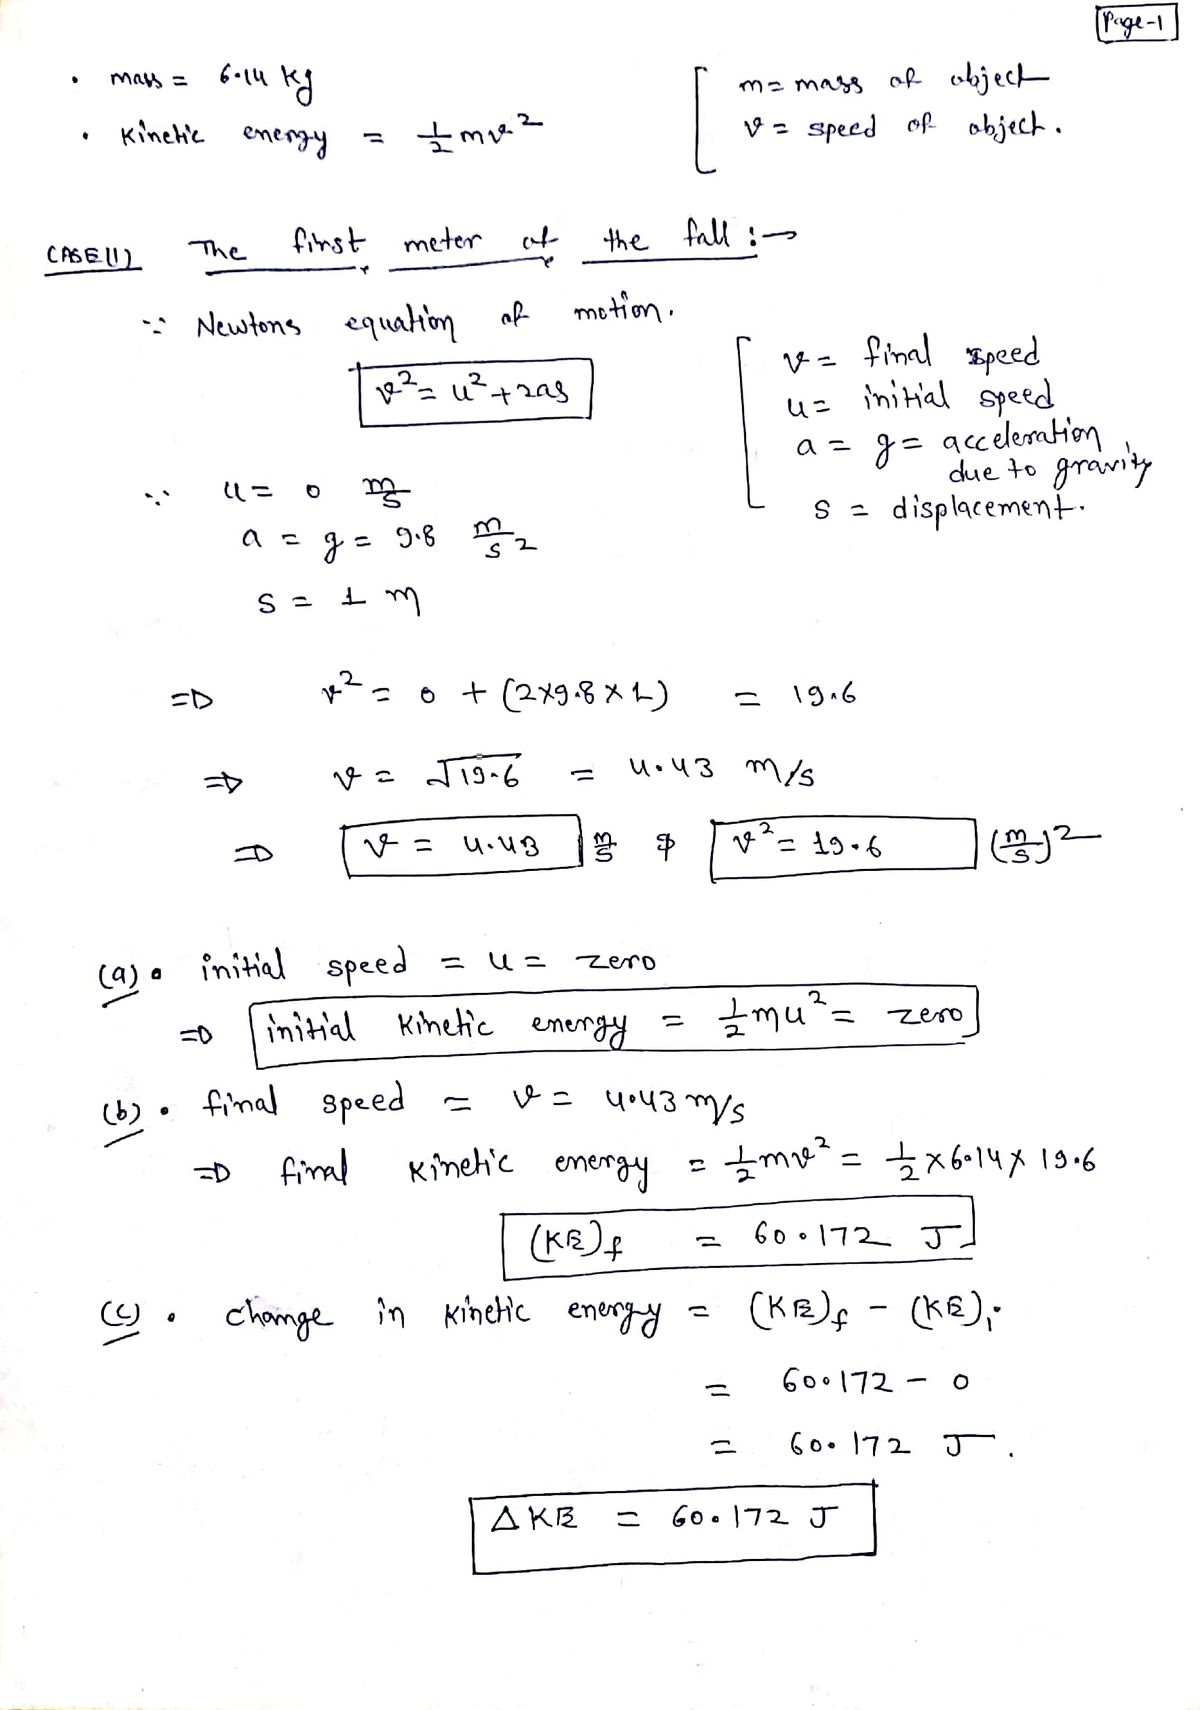 Page-1
• mass = 6.14 kg
• Kinetic energy = 1/2 mv²
[ m = mass of object
v = speed of object.
CASE(1) The first meter of the fall :→
∵ Newtons equation of motion.
v² = u² + 2as
[ v = final speed
u = initial speed
a = g = acceleration due to gravity
s = displacement.
∵ u = 0 m/s
a = g = 9.8 m/s²
s = 1 m
⇒ v² = 0 + (2×9.8×1) = 19.6
⇒ v = √19.6 = 4.43 m/s
⇒ v = 4.43 m/s & v² = 19.6 (m/s)²
(a) • initial speed = u = zero
⇒ initial kinetic energy = 1/2 mu² = zero
(b) • final speed = v = 4.43 m/s
⇒ final kinetic energy = 1/2 mv² = 1/2 × 6.14 × 19.6
(KE)f = 60.172 J
(c) • change in kinetic energy = (KE)f - (KE)i
= 60.172 - 0
= 60.172 J.
ΔKE = 60.172 J